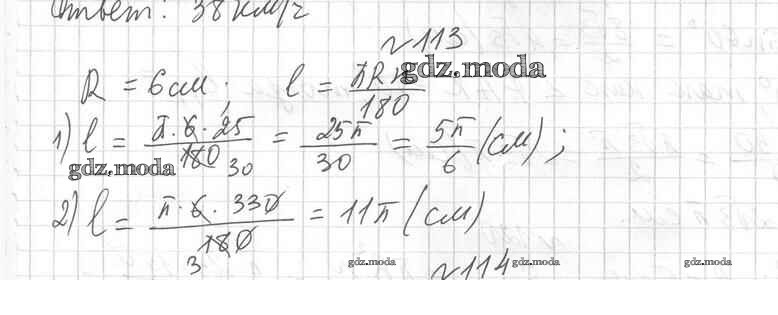 Ответ: 38 км/ч
№113
R = 6 см; l = πRn/180
gdz.moda
1) l = π·6·25/180 30 = 25π/30 = 5π/6 (см);
gdz.moda
2) l = π·6·330/180 3 = 11π (см)
gdz.moda №114 gdz.moda gdz.moda